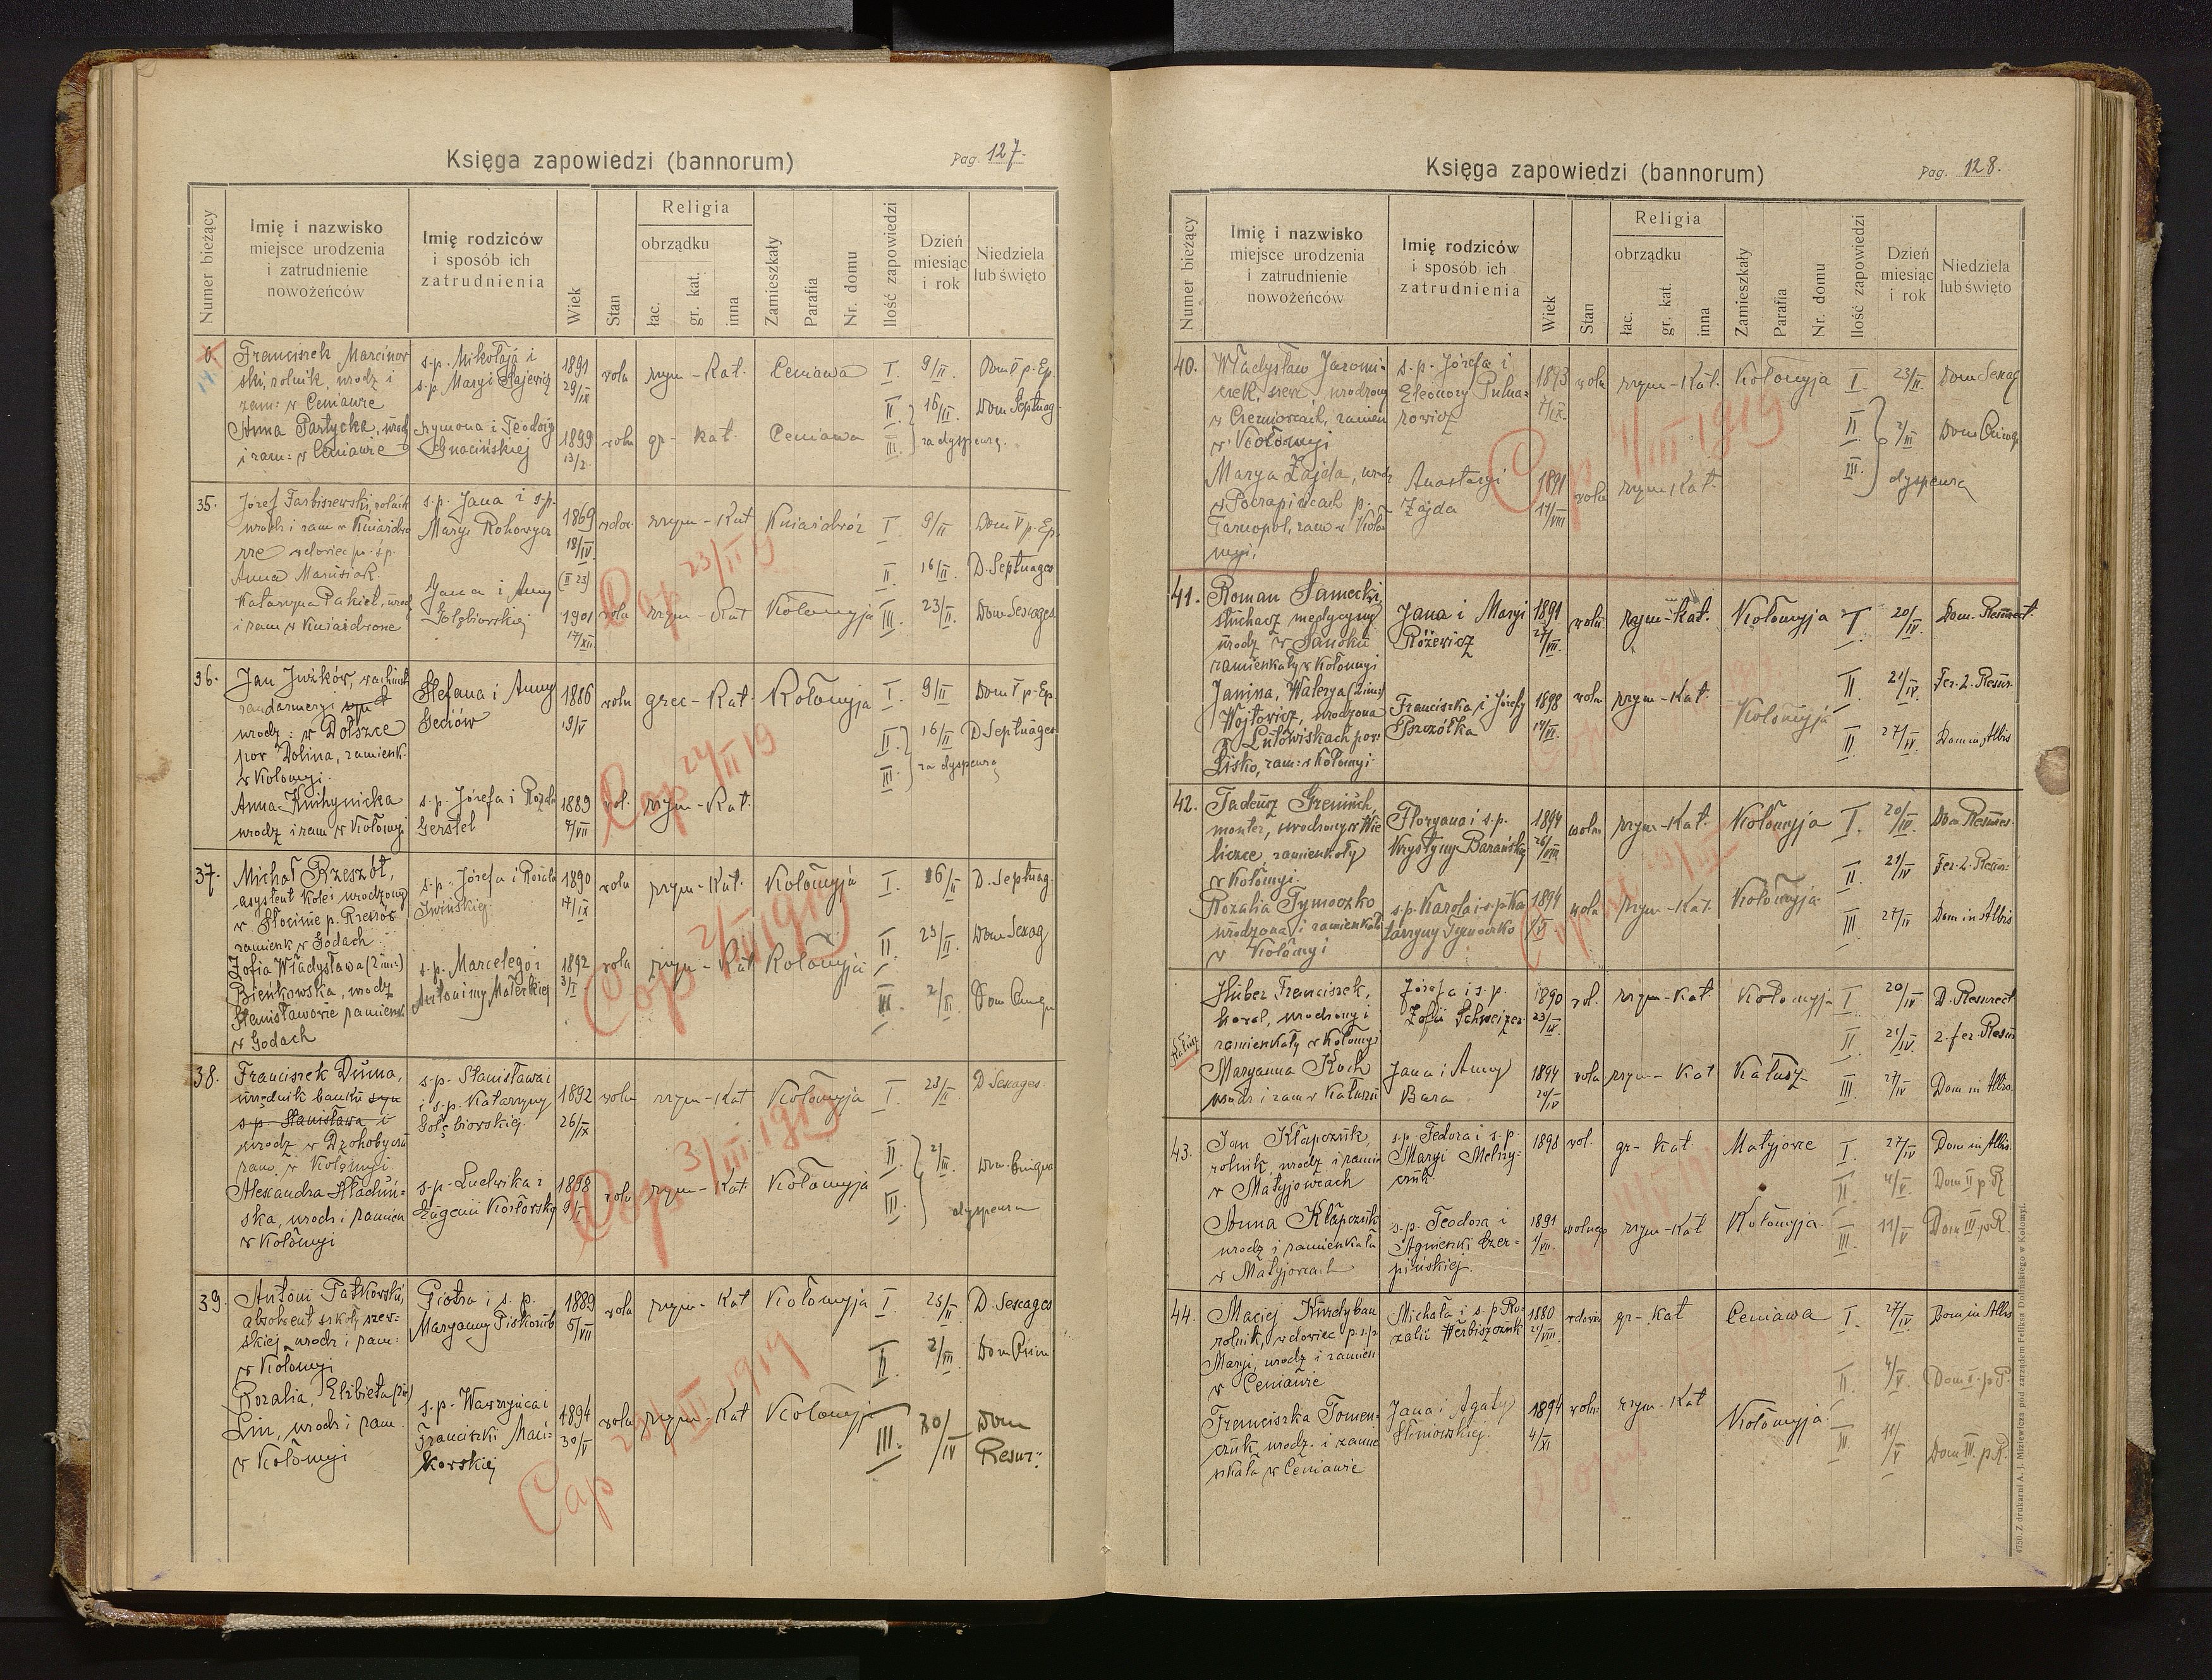 Księga zapowiedzi (bannorum)
Pag. 127.
Numer bieżący
Imię i nazwisko
miejsce urodzenia
i zatrudnienie
nowożeńców
Imię rodziców
i sposób ich
zatrudnienia
Wiek
Stan
Religia
obrządku
łac.
gr. kat.
inna
Zamieszkały
Parafia
Nr. domu
Ilość zapowiedzi
Dzień
miesiąc
i rok
Niedziela
lub święto
Franciszek Marcinow
ski, rolnik, urodz i
zam: w Ceniawie
s.p. Mikołaja i
s.p. Maryi
1891
29/IX
woln
rzym - Kat.
Ceniawa
I. 9/II. Dom V p. Ep.
II. 16/II. Dom Septuag
III. za dyspenzą.
Anna Partycka, urodz
i zam: w Ceniawie
Szymona i Teodozyi
Ignacińskiej
1899
13/2.
wolna
gr - Kat.
Ceniawa
35.
Józef Tarbiszewski, rolnik
urodz i zam w Kniaźdwo
rze wdowiec po ś.p.
Anna Marusiak.
s.p. Jana i s.p.
Maryi Rokowycz
1869
18/IV.
(II 23)
wdow.
rzym - Kat
Kniaźdwór
I 9/II Dom V p. Ep.
II. 16/II. D. Septuages
III. 23/II. Dom Sexages
Katarzyna Pakiet, urodz
i zam w Kniaźdworze
Jana i Anny
Gołębiowskiej
1901
17/XII.
wolna
rzym - Kat
Kołomyja
Cop 23/II 19
36.
Jan Jużków, wachmist
żandarmeryi syn
urodz: w Dołszce
pow Dolina, zamieszk.
w Kołomyi.
Stefana i Anny
Seniów
1886
19/V
woln
grec - Kat.
Kołomyja
I. 9/II Dom V p. Ep.
II. 16/II D. Septuages
III. za dyspenzą
Anna Knihynicka
urodz i zam w Kołomyi
s.p. Józefa i Rozalii
Gerstel
1889
7/VII
wol.
rzym - Kat.
Cop 24/II 19
37.
Michał Rzeszót,
asystent kolei urodzony
w Słocinie p. Rzeszów
zamieszk w Godach
s.p. Józefa i Rozalii
Iwińskiej
1890
17/IX
woln
rzym - Kat.
Kołomyja
I. 16/II D. Septuag.
II. 23/II. Dom Sexag
III. 2/III. Dom Quinqu
Zofia Władysława (2 im:)
Bieńkowska, urodz
Stanisławowie zamieszk
w Godach
s.p. Marcelego i
Antoniny Małeckiej
1892
3/I
wolna
rzym - Kat
Kołomyja
Cop 2/III 1919
38.
Franciszek Duma,
urzędnik banku syn
s.p. Stanisława i
urodz w Drohobyczu
zam. w Kołomyi.
s.p. Stanisława i
i s.p. Katarzyny
Gołębiowskiej.
1892
26/IX
woln
rzym - Kat
Kołomyja
I. 23/II. D Sexages.
II. 2/III. Dom. Quinqua
III. dyspensa
Alexandra
ska, urodz i zamien
w Kołomyi
s.p. Ludwika i
Eugenii Kozłowskiej
1898
9/I
wolna
rzym - Kat.
Kołomyja
Cop 3/III. 1919
39.
Antoni Fatkowski,
absolwent szkoły szew-
skiej, urodz i zam:
w Kołomyi
Piotra i s.p.
Maryanny Piskozub
1889
5/VII
woln
rzym - Kat
Kołomyja
I 23/II D. Sexages
II 2/III. Dom Quinu
III. 20/IV Dom
Resur:
Rozalia, Elżbieta (2 im)
Lin, urodz i zam.
w Kołomyi
s.p. Wawrzyńca i
Franciszki Maci-
korskiej
1894
30/V
wolna
rzym - Kat
Kołomyja
Cop
III 1919
Księga zapowiedzi (bannorum)
Pag. 128.
Numer bieżący
Imię i nazwisko
miejsce urodzenia
i zatrudnienie
nowożeńców
Imię rodziców
i sposób ich
zatrudnienia
Wiek
Stan
Religia
obrządku
łac.
gr. kat.
inna
Zamieszkały
Parafia
Nr. domu
Ilość zapowiedzi
Dzień
miesiąc
i rok
Niedziela
lub święto
40.
Władysław Jaromi-
czek, szewc, urodzony
w Czerniowcach, zamien
w Kołomyi
s.p. Józefa i
Eleonory Puhna-
rowicz
1893
7/IX.
woln
rzym - Kat.
Kołomyja
I. 23/II. Dom Sexag
II. 2/III Dom Quinqu
III. dyspenzą
Marya Zajda, urodz
w Poczapińcach p.
Tarnopol, zam w Koło
myi.
Anastazyi
Zajda
1891
17/VIII
wolna
rzym Kat.
Cop 4/III 1919
41.
Roman Samecki,
słuchacz medycyny
urodz w Sanoku
zamieszkały w Kołomyi
Jana i Maryi
Różewicz
1891
27/VII.
woln
rzym - Kat.
Kołomyja
I 20/IV. Dom. Resurrect.
II. 21/IV. Fer. 2. Resur.
II 27/IV. Dom in Albis
Janina, Walerya (2 im:)
Wojtowicz, urodzona
w Lutowiskach pow:
Lisko, zam: w Kołomyi.
Franciszka i Józefy
Pszczółka
1898
14/VI.
wolna
rzym - Kat.
Kołomyja
42.
Tadeusz Greninch,
monter, urodzony w Wie
liczce, zamieszkały
w Kołomyi.
Floryana i s.p.
Krystyny Barańskiej
1894
26/VIII
wolny
rzym - Kat.
Kołomyja
I. 20/IV. Dom Resurrec.
II. 21/IV Fer. 2. Resur:
III 27/IV Dom in Albis
Rozalia Tymoczko
urodzona i zamieszkała
w Kołomyi
s.p. Karola i s.p. Ka
tarzyny Tymoczko
1894
1/V
wolna
rzym - Kat.
Kołomyja
Kałusz
Huber Franciszek,
kowal, urodzony i
zamieszkały w Kołomyi
Józefa i s.p.
Zofii Schweizer
1890
23/IV.
wol.
rzym - Kat.
Kołomyja
I 20/IV D. Resurrect.
II 21/IV. 2. fer. Resur
III 27/IV Dom in Albis.
Maryanna Koch
urodz i zam w Kałuszu
Jana i Anny
Bara
1894
20/IV
wolna
rzym - Kat
Kałusz
43.
Jan Kłapczuk,
rolnik, urodz. i zamie
w Matyjowcach
s.p. Fedora i s.p.
Maryi Melny-
czuk
1898
wol.
gr - Kat.
Matyjowce
I. 27/IV Dom in Albis.
II. 4/V Dom II p R
III. 11/V Dom III p. R.
Anna Kłapczuk
urodz i zamieszkała
w Matyjowcach
s.p. Teodora i
Agnieszki Czer-
pińskiej.
1891
1/VII.
rzym - Kat
Kołomyja
44.
Maciej Kurdyban
rolnik, wdowiec p. s.p.
Maryi, urodz i zamien
w Ceniawie
Michała i s.p. Ro-
zalii Werbiszczuk
1880
21/VIII.
wdowiec
gr - Kat
Ceniawa
I. 27/IV Dom. in Albis
II. 4/V. Dom II. p. P.
III. 11/V Dom III. p. R.
Franciszka Tomen-
czuk, urodz. i zamie
szkała w Ceniawie
Jana i Agaty
Słoniowskiej.
1894
4/XI
woln:
rzym - Kat
Kołomyja
4750. Z drukarni A. J. Miziewicza pod zarządem Feliksa Dolińskiego w Kołomyi.